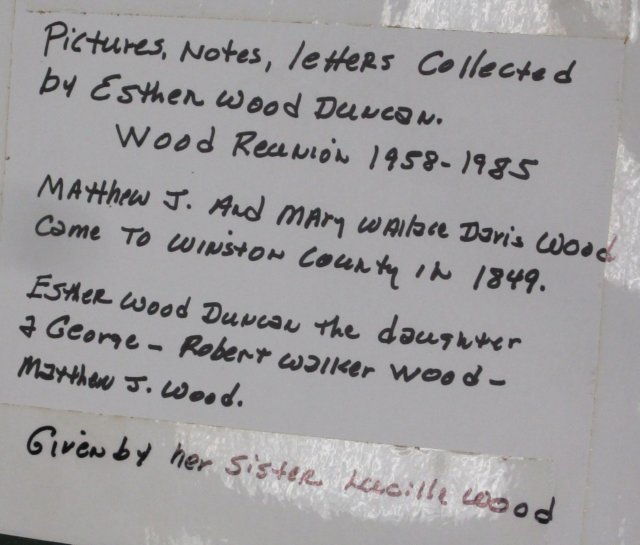 Pictures, Notes, letters Collected
by Esther Wood Duncan.
Wood Reunion 1958-1985
Matthew J. And Mary Wallace Davis Wood
Came To Winston County in 1849.
Esther Wood Duncan the daughter
of George - Robert Walker Wood -
Matthew J. Wood.
Given by her Sister Lucille Wood